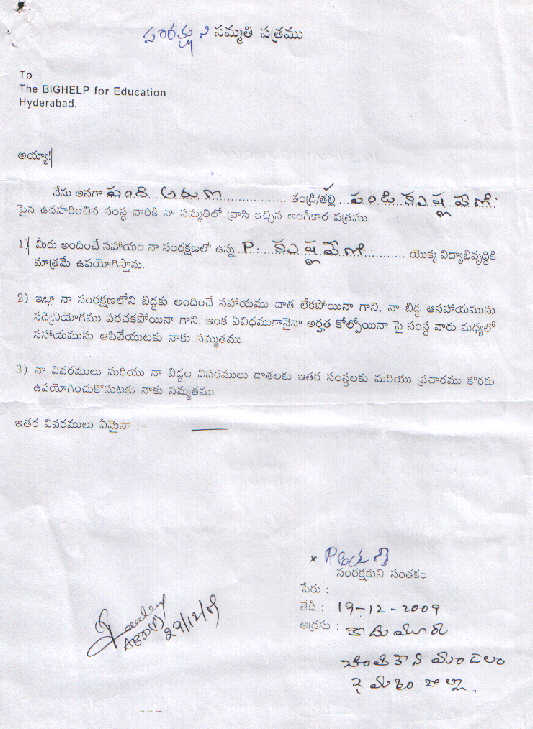 సంరక్షుని సమ్మతి పత్రము
To
The BIGHELP for Education
Hyderabad.
అయ్యా!
నేను అనగా పంది అరుణ .................. తండ్రి/తల్లి ... పంది కృష్ణవేణి
పైన ఉదహరించిన సంస్థ వారికి నా సమ్మతిలో వ్రాసి ఇచ్చిన అంగీకార పత్రము
1) మీరు అందించే సహాయం నా సంరక్షణలో ఉన్న P. కృష్ణవేణి ............ యొక్క విద్యాభివృద్ధికి
మాత్రమే ఉపయోగిస్తాను.
2) ఇట్లా నా సంరక్షణలోని బిడ్డకు అందించే సహాయము దాత లేకపోయినా గాని, నా బిడ్డ ఆసహాయమును
సద్వినియోగము పరచకపోయినా గాని, ఇంక ఏవిధముగానైనా అర్హత కోల్పోయినా పై సంస్థ వారు మధ్యలో
సహాయమును ఆపివేయుటకు నాకు సమ్మతము
3) నా వివరములు మరియు నా బిడ్డల వివరములు దాతలకు ఇతర సంస్థలకు మరియు ప్రచారము కొరకు
ఉపయోగించుకొనుటకు నాకు సమ్మతము
ఇతర వివరములు ఏమైనా
సంరక్షకుని సంతకం
పేరు :
తేది : 19-12-2009
అడ్రసు :
మండలం
జిల్లా.
29/12/09